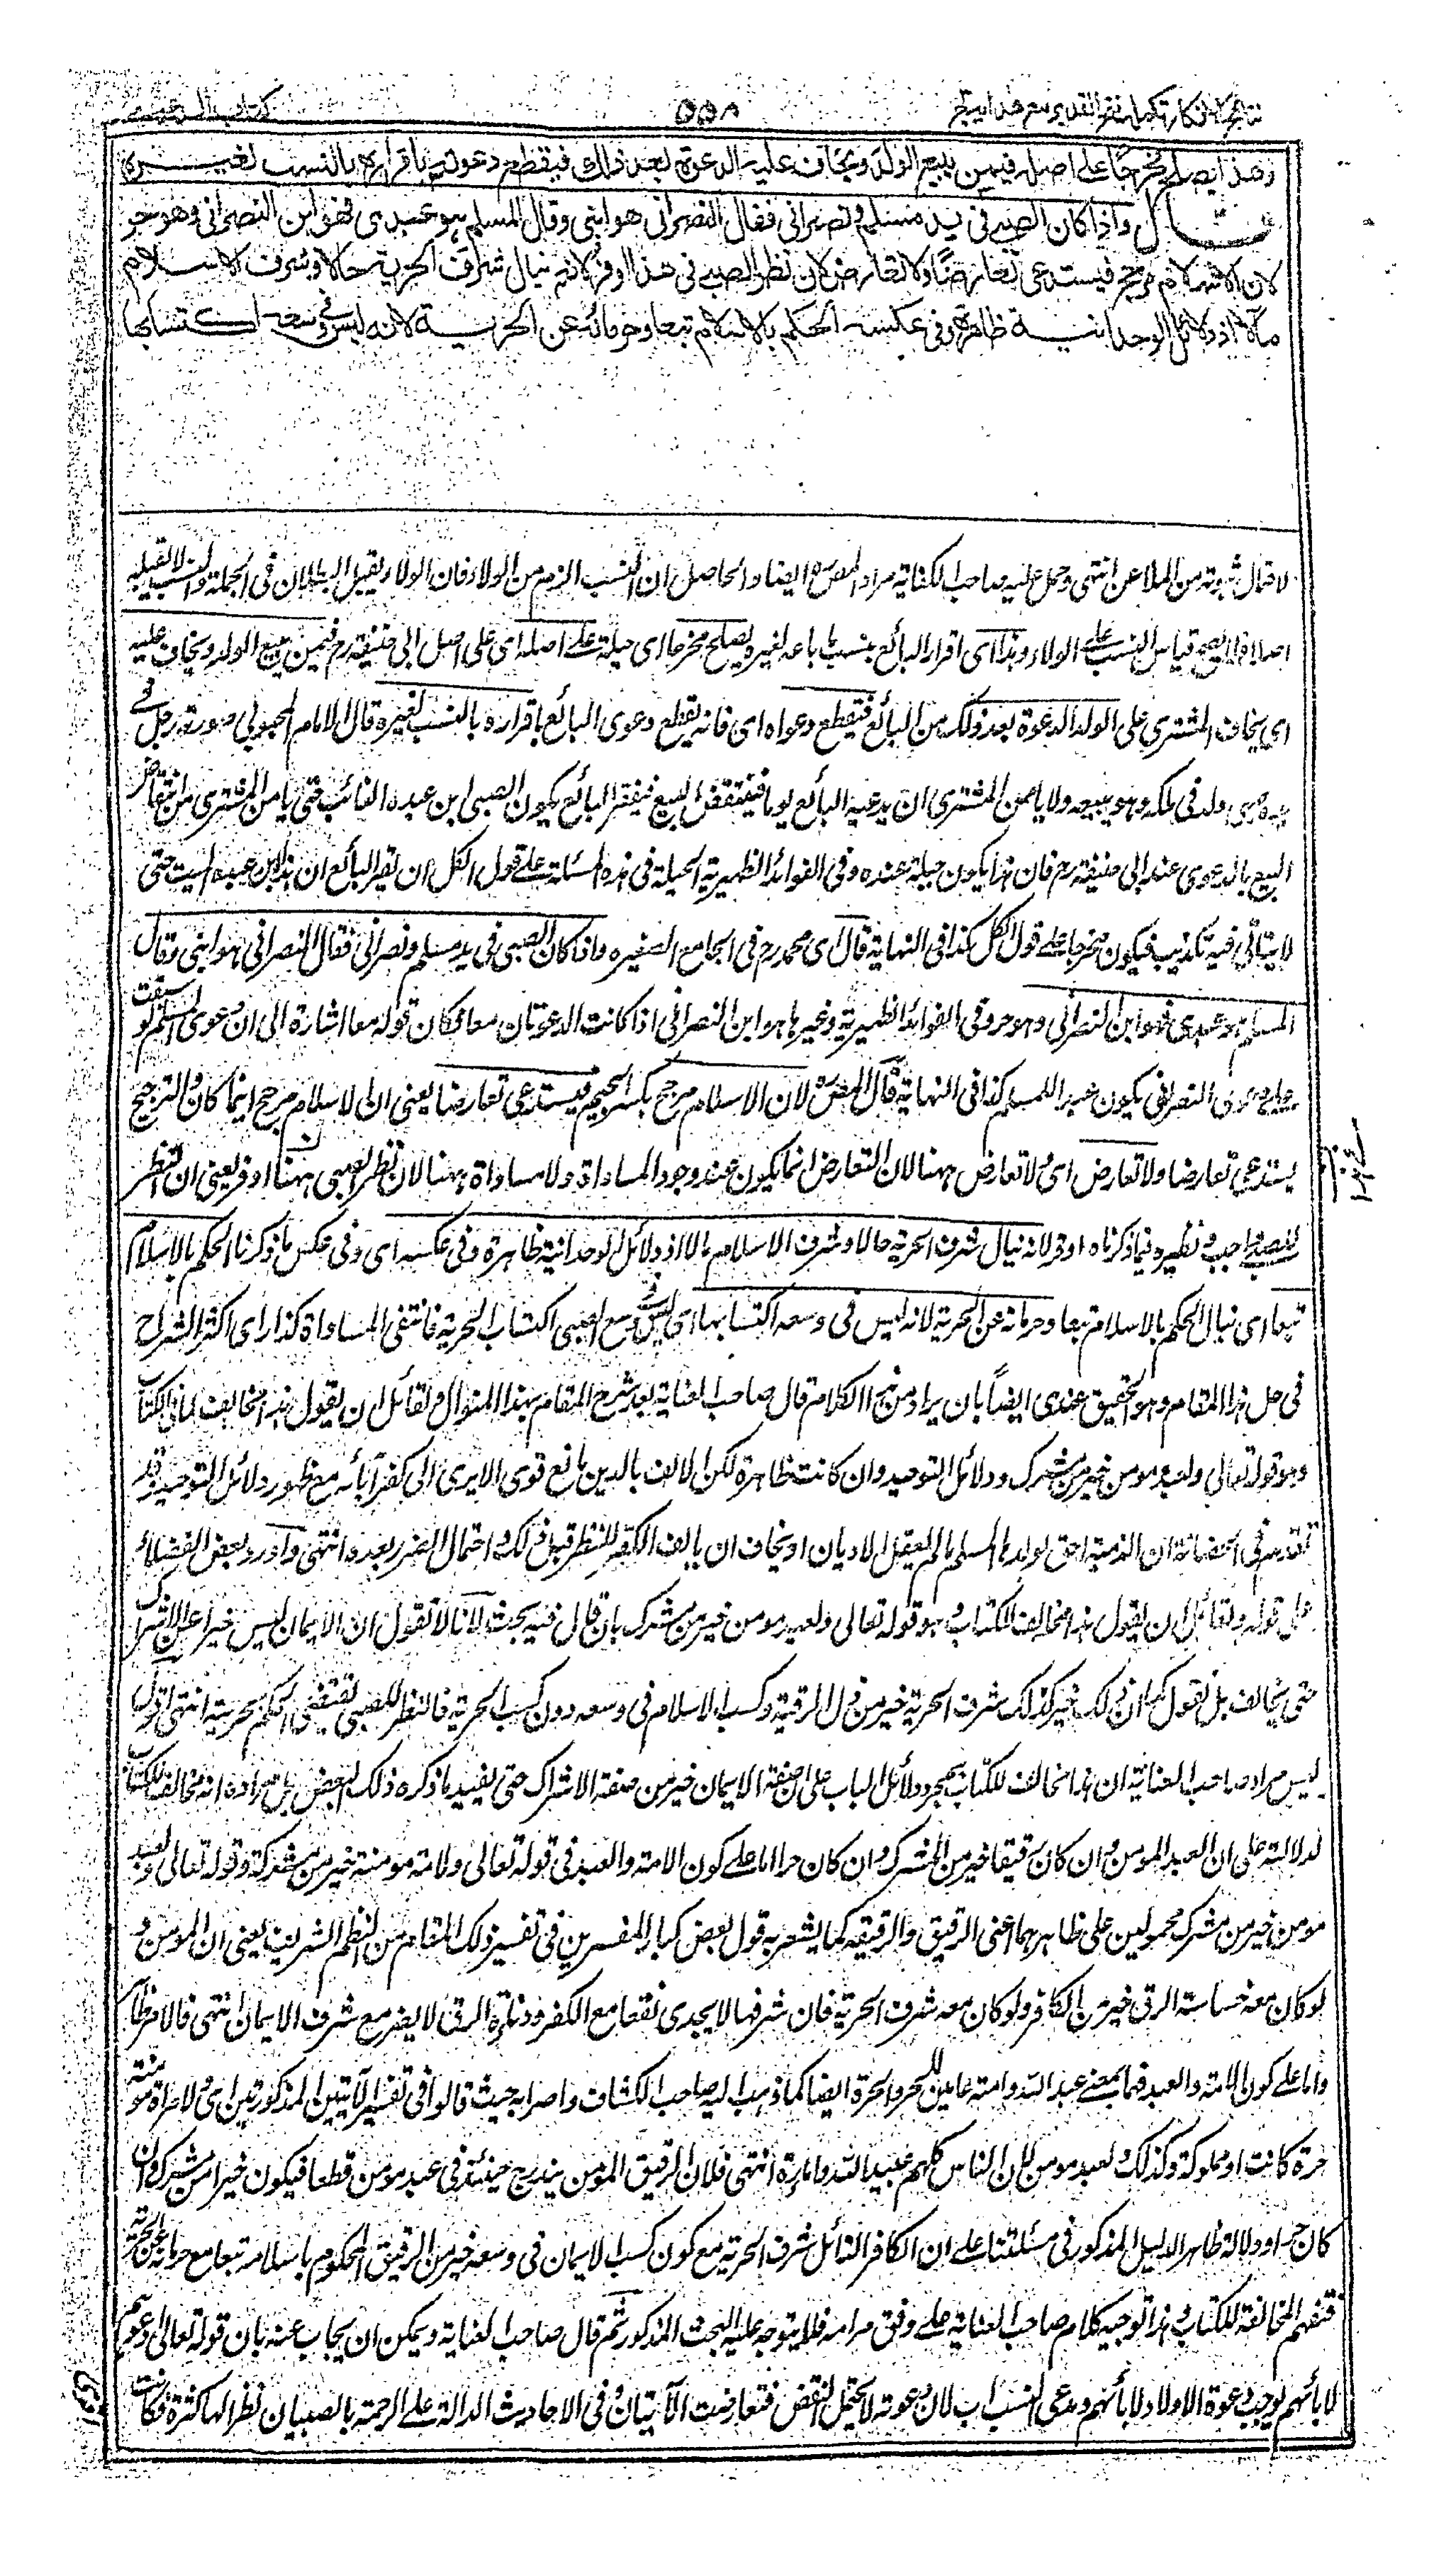 نتائج الافكار تكملة فتح القدير مع هداية ٥٥٨ كتاب الدعوى
وهذا يصلح مخرجا على اصله فيمن يبيع الولد ويخاف عليه الدعوة بعد ذلك فيقطع دعوته باقراره بالنسب لغيره
قال واذا كان الصبي في يد مسلم ونصراني فقال النصراني هو ابني وقال المسلم هو عبدي فهو ابن النصراني وهو حر
لان الاسلام مرجح فيستدعي تعارضا ولا تعارض لان نظر الصبي في هذا اوفر لانه ينال شرف الحرية حالا وشرف الاسلام
مآلا اذ دلائل الوحدانية ظاهرة وفي عكسه الحكم بالاسلام تبعا وحرمانه عن الحرية لانه ليس في وسعه اكتسابها
لاحتمال ثبوته من الملاعن انتهى وحمل عليه صاحب الكفاية مراد المصنف ايضا والحاصل ان النسب الزم من الولاء فان الولاء يقبل البطلان في الجملة والنسب لا يقبله
اصلا فلا يصح قياس النسب على الولاء وهذا اى اقرار البائع بنسب ما باعه لغيره يصلح مخرجا اى حيلة على اصله اى على اصل ابى حنيفة رح فيمن يبيع الولد ويخاف عليه
اى يخاف المشتري على الولد الدعوة بعد ذلك من البائع فيقطع دعواه اى فانه يقطع دعوى البائع باقراره بالنسب لغيره قال الامام المحبوبي صورته رجل في
يده صبى ولد فى ملكه وهو يبيعه ولا يامن المشترى ان يدعيه البائع يوما فينتقض البيع فيقر البائع بكون الصبى ابن عبده الغائب حتى يامن المشترى من انتقاض
البيع بالدعوى عند ابى حنيفة رح فان هذا يكون حيلة عنده وفى الفوائد الظهيرية الحيلة فى هذه المسئلة على قول الكل ان يقر البائع ان هذا ابن عبده الميت حتى
لا يتاتى فيه تكذيب فيكون مخرجا على قول الكل كذا فى النهاية قال اى محمد رح فى الجامع الصغير واذا كان الصبى فى يد مسلم ونصرانى فقال النصرانى هو ابنى وقال
المسلم هو عبدى فهو ابن النصرانى وهو حر وفى الفوائد الظهيرية وغيرها هو ابن النصرانى اذا كانت الدعوتان معا وكان قوله معا اشارة الى ان دعوى المسلم لو سبقت
على دعوى النصرانى يكون عبدا للمسلم كذا فى النهاية قال المصنف لان الاسلام مرجح بكسر الجيم فيستدعى تعارضا يعنى ان الاسلام مرجح اينما كان والترجيح
يستدعى تعارضا ولا تعارض اى ولا تعارض ههنا لان التعارض انما يكون عند وجود المساواة ولا مساواة ههنا لان نظر الصبى ههنا اوفر يعنى ان النظر
للصبى واجب ونظره فيما ذكرناه اوفر لانه ينال شرف الحرية حالا وشرف الاسلام مآلا اذ دلائل الوحدانية ظاهرة وفى عكسه اى وفى عكس ما ذكرنا الحكم بالاسلام
تبعا اى ينال الحكم بالاسلام تبعا وحرمانه عن الحرية لانه ليس فى وسعه اكتسابها اى ليس فى وسع الصبى اكتساب الحرية فانتفى المساواة كذا رأى اكثر الشراح
فى حل هذا المقام وهو التحقيق عندى ايضا بان يراد من هذا الكلام قال صاحب العناية بعد شرح المقام بهذا المنوال ولقائل ان يقول هذا مخالف لما فى الكتاب
وهو قوله تعالى ولعبد مومن خير من مشرك ودلائل التوحيد وان كانت ظاهرة لكن الالف بالدين مانع قوى الا يرى الى كفر آبائه مع ظهور دلائل التوحيد وقد
تقدم فى الحضانة ان الذمية احق بولدها المسلم ما لم يعقل الاديان او يخاف ان يالف الكفر للنظر قبل ذلك واحتمال الضرر بعده انتهى واورد بعض الفضلاء
على قوله ولقائل ان يقول هذا مخالف للكتاب وهو قوله تعالى ولعبد مومن خير من مشرك بان قال فيه بحث لانا لا نقول ان الايمان ليس خيرا عن الاشراك
حتى يخالف بل نقول كما ان ذلك خير كذلك شرف الحرية خير من ذل الرقية وكسب الاسلام فى وسعه دون كسب الحرية فالنظر للصبى يقتضى الحكم بحريته انتهى اقول
ليس مراد صاحب العناية ان هذا مخالف للكتاب بمجرد دلائل الباب على ان صفة الايمان خير من صفة الاشراك حتى يفيد ما ذكره ذلك البعض بل مراده انه مخالف للكتاب
لدلالته على ان العبد المومن وان كان رقيقا خير من المشرك وان كان حرا اما على كون الامة والعبد فى قوله تعالى ولامة مومنة خير من مشركة وقوله تعالى ولعبد
مومن خير من مشرك محمولين على ظاهرهما اعنى الرقيق والرقيقة كما يشعر به قول بعض كبار المفسرين فى تفسير ذلك المقام من النظم الشريف يعنى ان المومن و
لو كان معه خساسة الرق خير من الكافر ولو كان معه شرف الحرية فان شرفها لا يجدى نفعا مع الكفر ودناءة الرق لا يضر مع شرف الايمان انتهى فالامر ظاهر
واما على كون الامة والعبد فيهما بمعنى عبد الله وامته عامين للحر والحرة ايضا كما ذهب اليه صاحب الكشاف واضرابه حيث قالوا فى تفسير الآيتين المذكورتين اى ولامراة مومنة
حرة كانت او مملوكة وكذلك ولعبد مومن لان الناس كلهم عبيد الله واماؤه انتهى فلان الرقيق المومن يندرج حينئذ فى عبد مومن قطعا فيكون خيرا من مشرك وان
كان حرا ودلالة ظاهر الدليل المذكور فى مسئلتنا على ان الكافر النائل شرف الحرية مع كون كسب الايمان فى وسعه خير من الرقيق المحكوم باسلامه تبعا مع حرمانه عن الحرية
فتفهم المخالفة للكتاب هذا توجيه كلام صاحب العناية على وفق مرامه فلا يتوجه عليه البحث المذكور ثم قال صاحب العناية ويمكن ان يجاب عنه بان قوله تعالى ادعوهم
لابائهم يوجب دعوة الاولاد لابائهم ومدعى النسب اب لان دعوته لا يحتمل النقض فتعارضت الآيتان وفى الاحاديث الدالة على الرحمة بالصبيان نظر الها كثرة فكانت